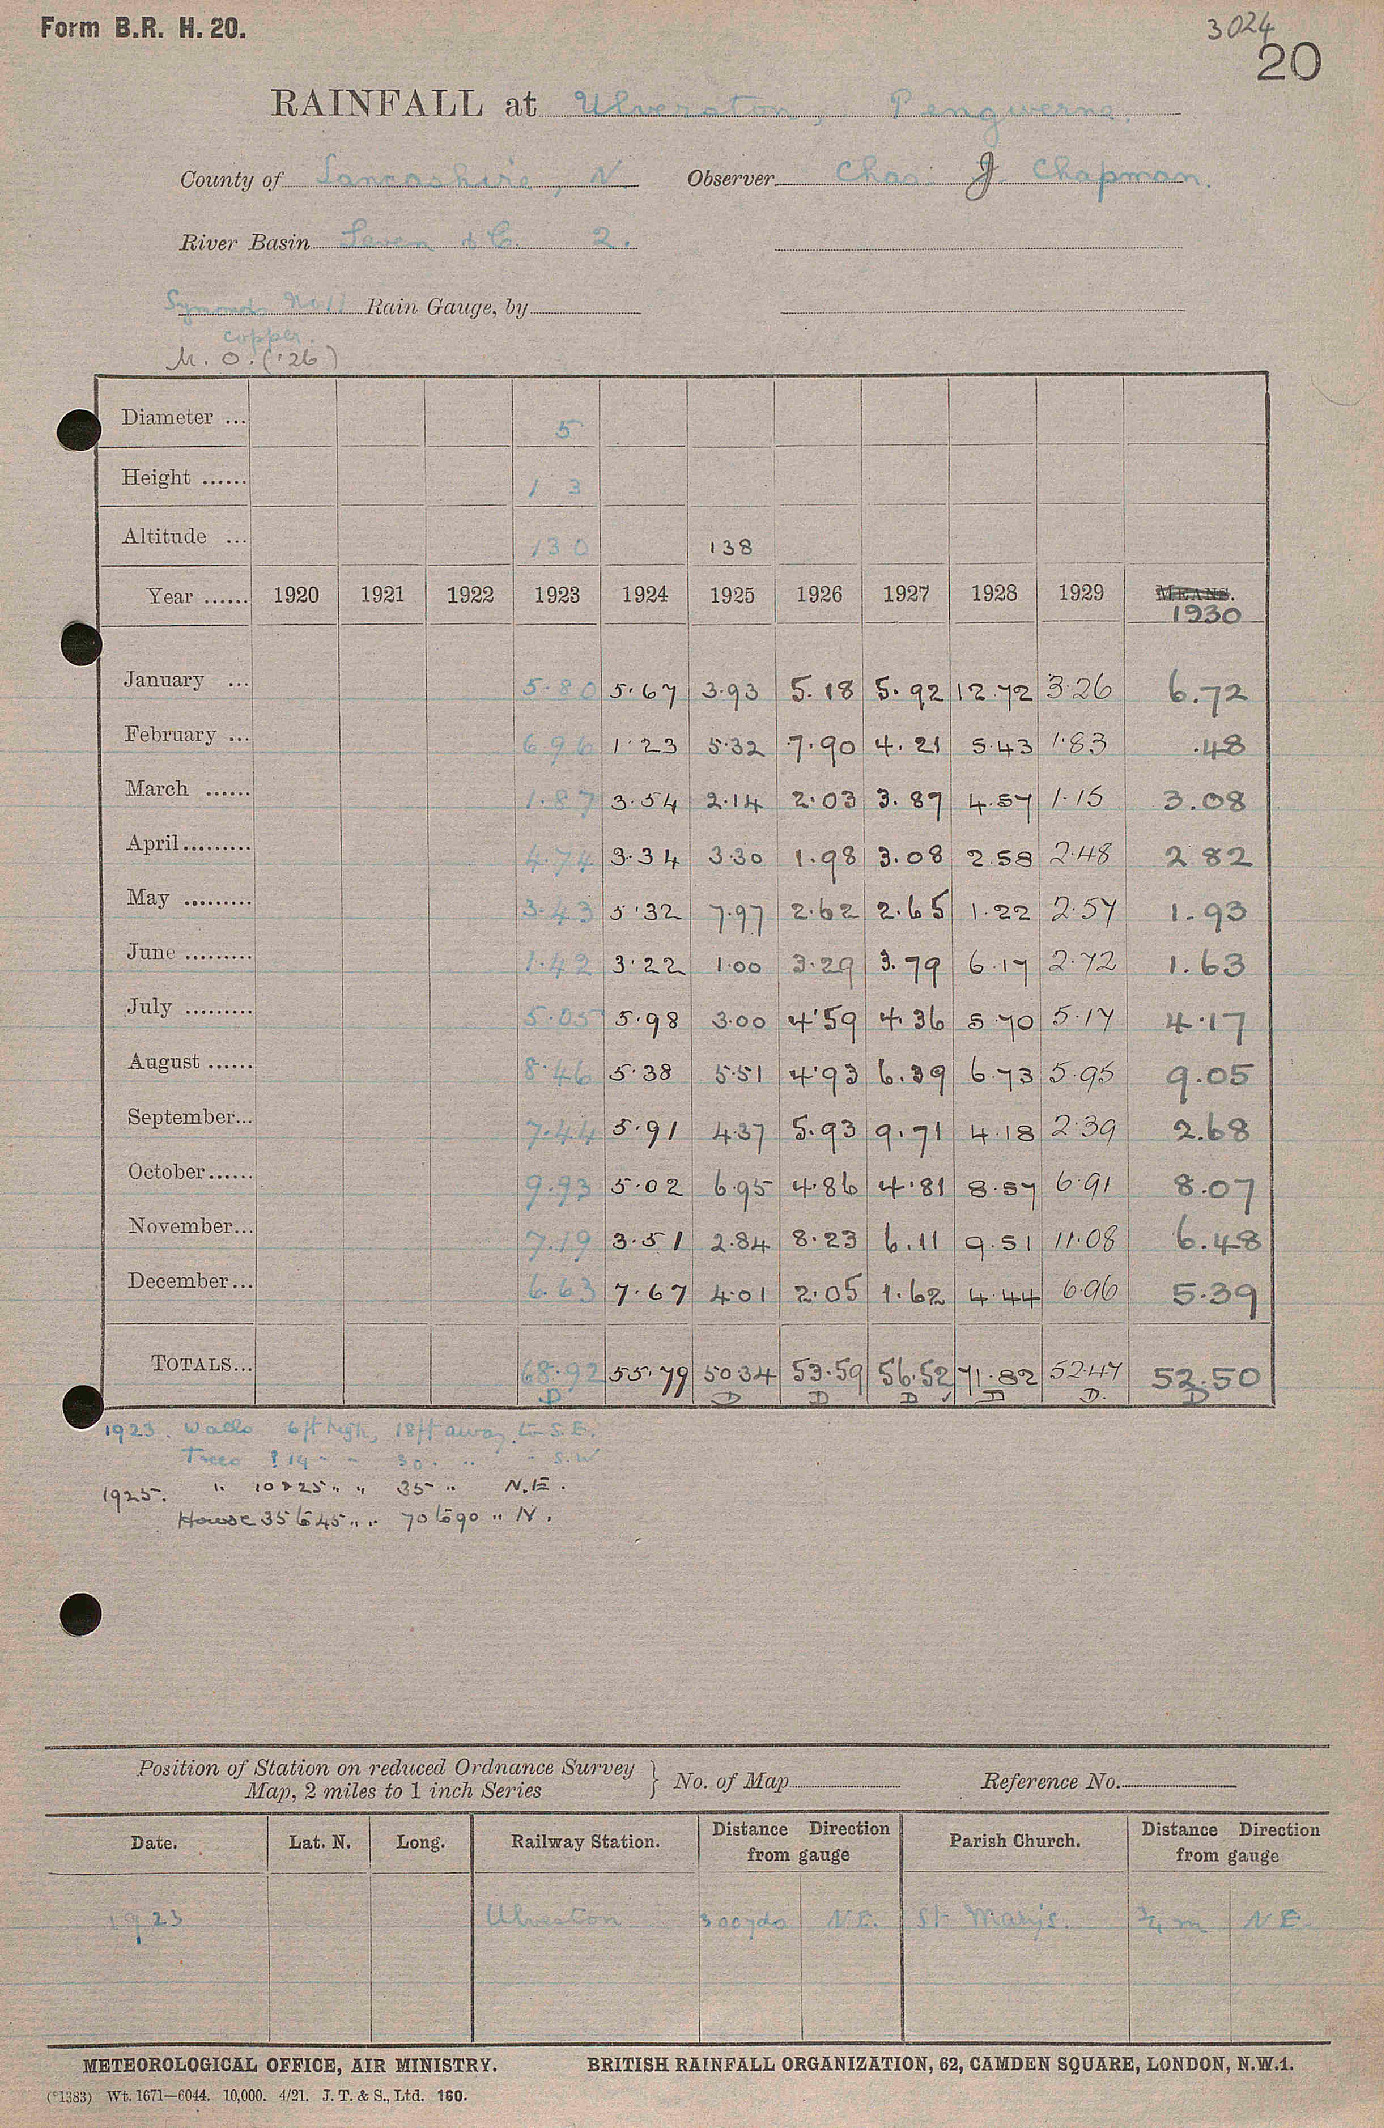 Form B.R. H. 20.
3024
20
RAINFALL at Ulverston, Pengwerne.
County of Lancashire, N Observer Chas. J. Chapman.
River Basin Leven &C. 2.
Symonds No 11 Rain Gauge, by
copper.
M. O. ('26)
Diameter ... 5
Height ...... 1 3
Altitude ... 130 138
Year ...... 1920 1921 1922 1923 1924 1925 1926 1927 1928 1929 MEANS.
1930
January ... 5.80 5.67 3.93 5.18 5.92 12.72 3.26 6.72
February ... 6.96 1.23 5.32 7.90 4.21 5.43 1.83 .48
March ...... 1.87 3.54 2.14 2.03 3.87 4.57 1.15 3.08
April......... 4.74 3.34 3.30 1.98 3.08 2.58 2.48 2.82
May ......... 3.43 5.32 7.97 2.62 2.65 1.22 2.57 1.93
June ......... 1.42 3.22 1.00 3.29 3.79 6.17 2.72 1.63
July ......... 5.05 5.98 3.00 4.59 4.36 5.70 5.17 4.17
August ...... 8.46 5.38 5.51 4.93 6.39 6.73 5.95 9.05
September... 7.44 5.91 4.37 5.93 9.71 4.18 2.39 2.68
October...... 9.93 5.02 6.95 4.86 4.81 8.57 6.91 8.07
November... 7.19 3.51 2.84 8.23 6.11 9.51 11.08 6.48
December... 6.63 7.67 4.01 2.05 1.62 4.44 6.96 5.39
TOTALS... 68.92 55.79 50.34 53.59 56.52 71.82 52.47 52.50
D D D D D D. D
1923. Walls 6ft high, 18ft away to S.E.
Trees ? 14 " " 30 " " " S.W
1925. " 10 & 25 " " 35 " N.E.
House 35 to 45 " " 70 to 90 " N.
Position of Station on reduced Ordnance Survey
Map, 2 miles to 1 inch Series } No. of Map Reference No.
Date. Lat. N. Long. Railway Station. Distance Direction from gauge Parish Church. Distance Direction from gauge
1923 Ulverston 300yds N.E. St. Mary's. 3/4 m N E.
METEOROLOGICAL OFFICE, AIR MINISTRY. BRITISH RAINFALL ORGANIZATION, 62, CAMDEN SQUARE, LONDON, N.W.1.
(*1383) Wt. 1671—6044. 10,000. 4/21. J. T. & S., Ltd. 160.